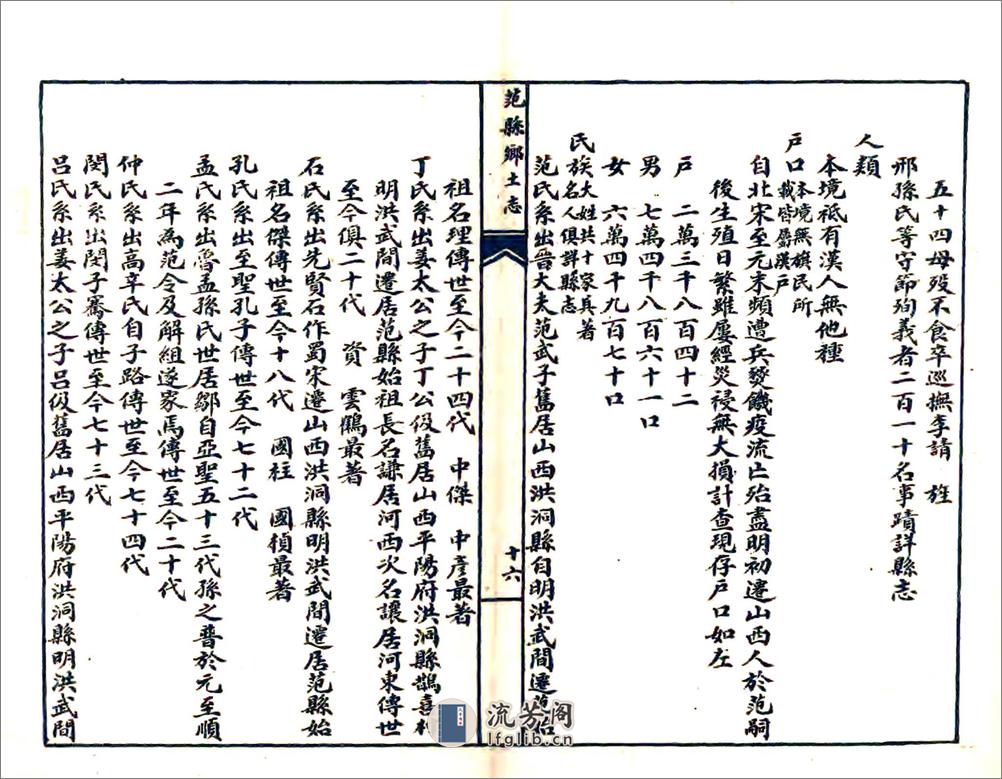 五十四母歿不食卒巡撫李請　旌
邢孫氏等守節殉義者二百一十名事蹟詳縣志
人類
本境祗有漢人無他種
戶口本境無旗民所載皆屬漢戶
自北宋至元末頻遭兵燹饑疫流亡殆盡明初遷山西人於范嗣
後生殖日繁雖屢經災祲無大損計查現存戶口如左
戶　二萬三千八百四十二
男　七萬四千八百六十一口
女　六萬四千九百七十口
民族大姓共十家其著名人俱詳縣志
范氏系出晉大夫范武子舊居山西洪洞縣自明洪武間遷范始
范縣鄉土志
十六
祖名理傳世至今二十四代　中傑　中彥最著
丁氏系出姜太公之子丁公伋舊居山西平陽府洪洞縣鵲喜
明洪武間遷居范縣始祖長名謙居河西次名讓居河東傳世
至今俱二十代　資　雲鵬最著
石氏系出先賢石作蜀宋遷山西洪洞縣明洪武間遷居范縣始
祖名傑傳世至今十八代　國柱　國楨最著
孔氏系出至聖孔子傳世至今七十二代
孟氏系出魯孟孫氏世居鄒自亞聖五十三代孫之普於元至順
二年為范令及解組遂家焉傳世至今二十代
仲氏系出高辛氏自子路傳世至今七十四代
閔氏系出閔子騫傳世至今七十三代
呂氏系出姜太公之子呂伋舊居山西平陽府洪洞縣明洪武間
流芳阁
lfglib.cn